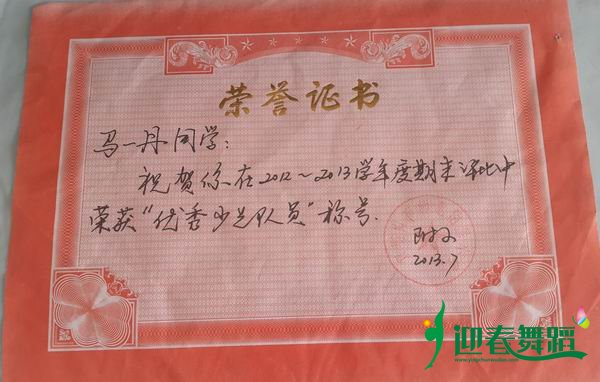 荣誉证书
马一丹同学:
祝贺你在2012~2013学年度期末评比中
荣获"优秀少先队员"称号.
2013.7
迎春舞蹈